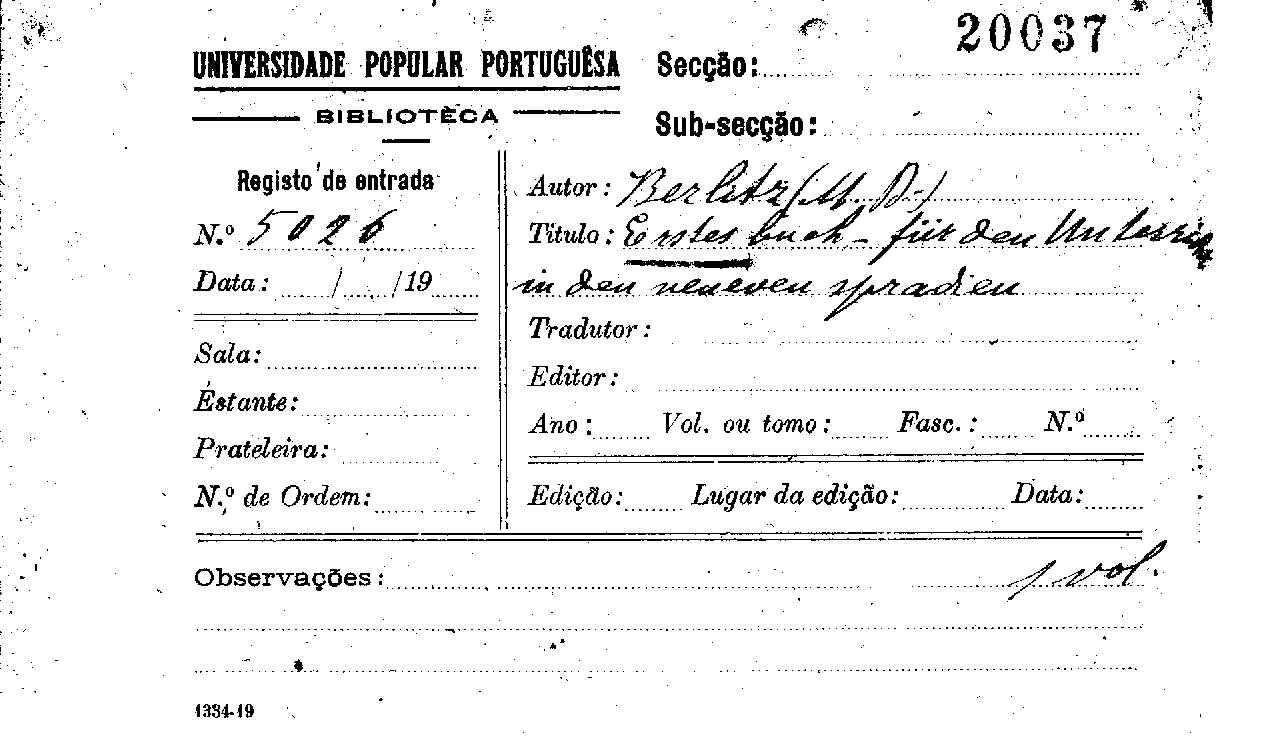 20037
UNIVERSIDADE POPULAR PORTUGUÊSA
BIBLIOTÈCA
Secção:
Sub-secção:
Registo de entrada
N.º 5026
Data: / /19
Sala:
Estante:
Prateleira:
N.º de Ordem:
Autor: Berlitz (M. D.)
Titulo: Erstes buch - für den Unterric
in den neueven spradien
Tradutor:
Editor:
Ano: Vol. ou tomo: Fasc.: N.º
Edição: Lugar da edição: Data:
Observações: 1 vol.
1334-19